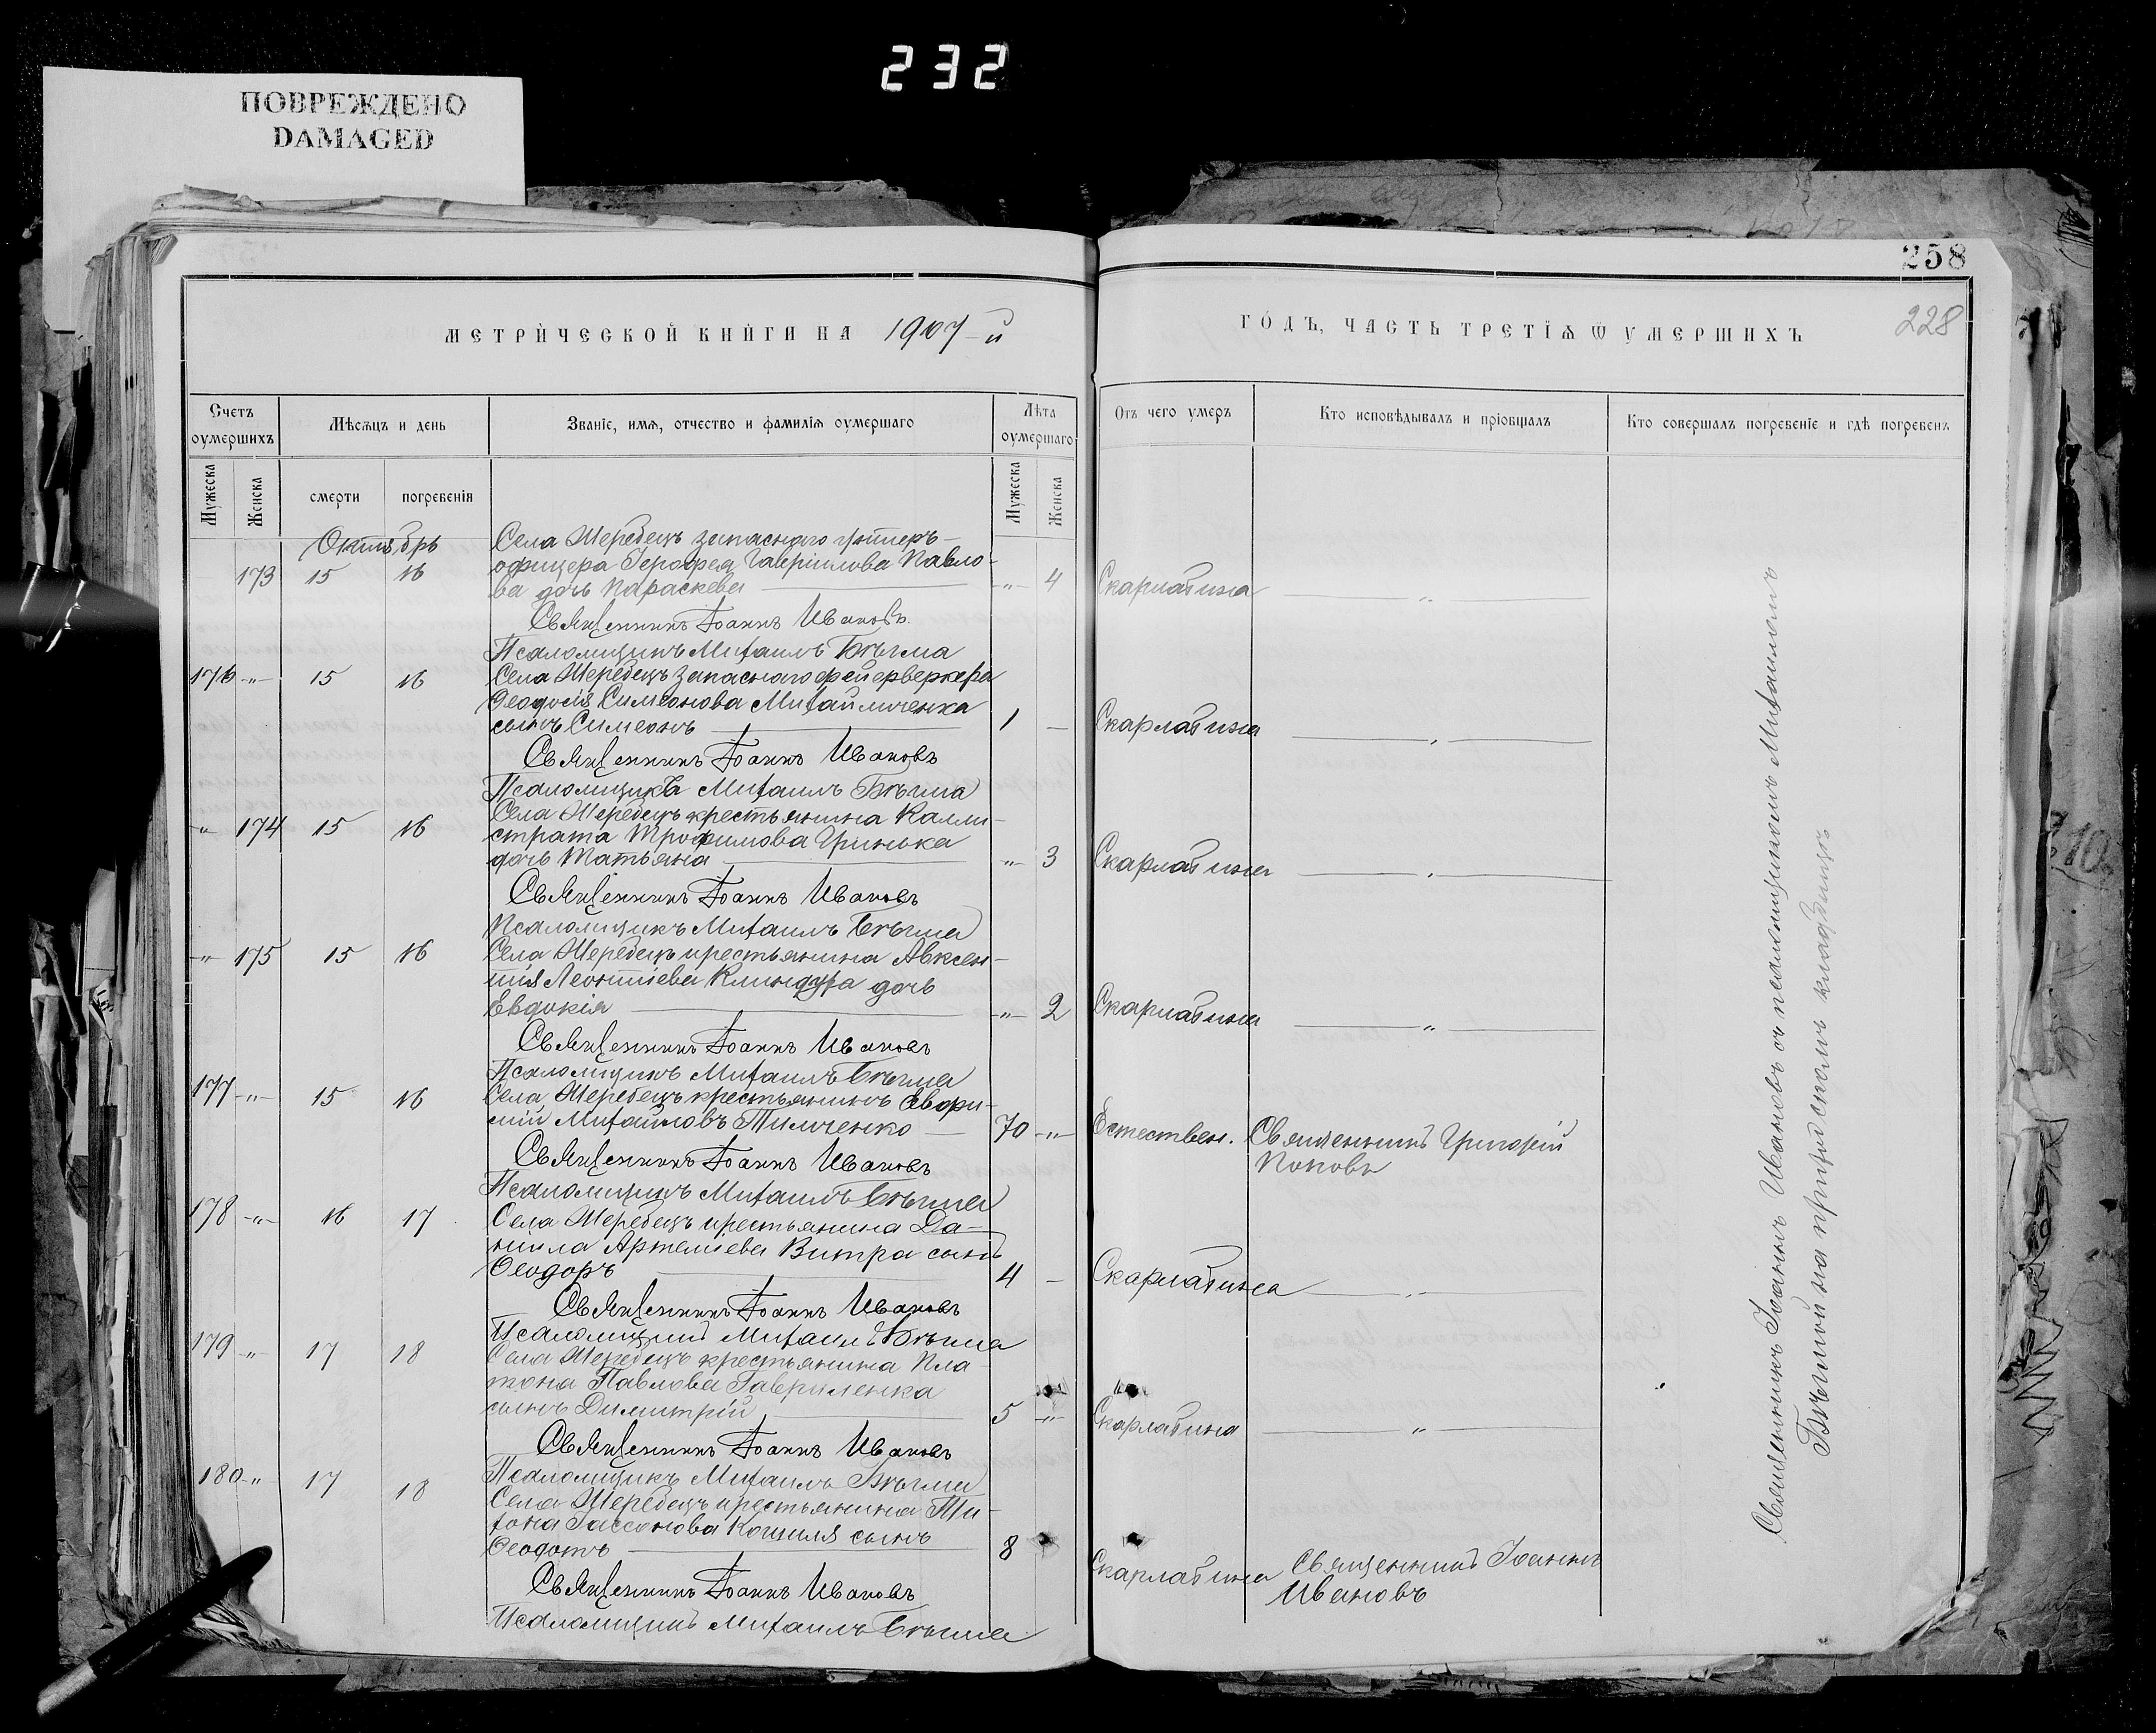 232
ПОВРЕЖДЕНО
DAMAGED
258
228
МЕТРИ́ЧЕСКОЙ КНИ́ГИ НА 1907-й
ГО́ДЪ, ЧАСТЬ ТРЕТІѦ Ѿ УМЕРШИХЪ
Счетъ оумершихъ
Мѣсѧцъ и день
Званіе, имѧ, отчество и фамиліѧ оумершаго
Лѣта оумершаго
Отъ чего умеръ
Кто исповѣдывалъ и пріобщалъ
Кто совершалъ погребеніе и гдѣ погребенъ
Мужеска
Женска
смерти
погребенія
Мужеска
Женска
Октябрь
Села Жеребецъ запаснаго унтеръ-
173 15 16 офицера Іерофея Гавріилова Павло-
ва дочь Параскева -"- 4 Скарлатина "
Священникъ Іоаннъ Ивановъ
Псаломщикъ Михаилъ Бѣгма
176 -"- 15 16 Села Жеребецъ запаснаго фейерверкера
Феодосія Симеонова Михайличенка
сынъ Симеонъ 1 - Скарлатина "
Священникъ Іоаннъ Ивановъ
Псаломщикъ Михаилъ Бѣгма
-"- 174 15 16 Села Жеребецъ крестьянина Калли-
страта Трофимова Гринька
дочь Татьяна -"- 3 Скарлатина "
Священникъ Іоаннъ Ивановъ
Псаломщикъ Михаилъ Бѣгма
-"- 175 15 16 Села Жеребецъ крестьянина Авксен-
тія Леонтіева дочь
Евдокія -"- 2 Скарлатина "
Священникъ Іоаннъ Ивановъ
Псаломщикъ Михаилъ Бѣгма
177 -"- 15 16 Села Жеребецъ крестьянинъ Евфи-
мій Михайловъ Тимченко 70 -"- Естествен. Священникъ Григорій
Поповъ
Священникъ Іоаннъ Ивановъ
Псаломщикъ Михаилъ Бѣгма
178 -"- 16 17 Села Жеребецъ крестьянина Да-
ніила Артеміева Витра сынъ
Феодоръ 4 - Скарлатина "
Священникъ Іоаннъ Ивановъ
Псаломщикъ Михаилъ Бѣгма
179 -"- 17 18 Села Жеребецъ крестьянина Пла-
тона Павлова Гавриленка
сынъ Димитрій 5 -"- Скарлатина "
Священникъ Іоаннъ Ивановъ
Псаломщикъ Михаилъ Бѣгма
180 -"- 17 18 Села Жеребецъ крестьянина Ти-
хона сынъ
Феодотъ 8 Скарлатина Священникъ Іоаннъ
Ивановъ
Священникъ Іоаннъ Ивановъ
Псаломщикъ Михаилъ Бѣгма
Священникъ Іоаннъ Ивановъ съ псаломщикомъ Михаиломъ
Бѣгмой на приходскомъ кладбищѣ